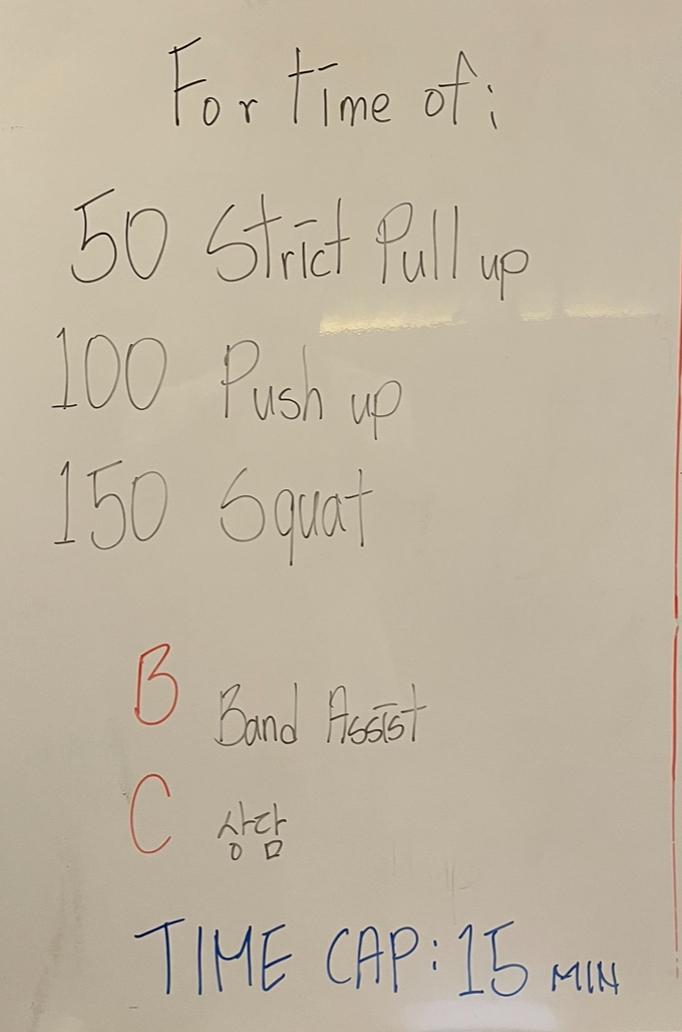 For time of:
50 Strict Pull up
100 Push up
150 Squat
B Band Assist
C 상담
TIME CAP: 15 MIN